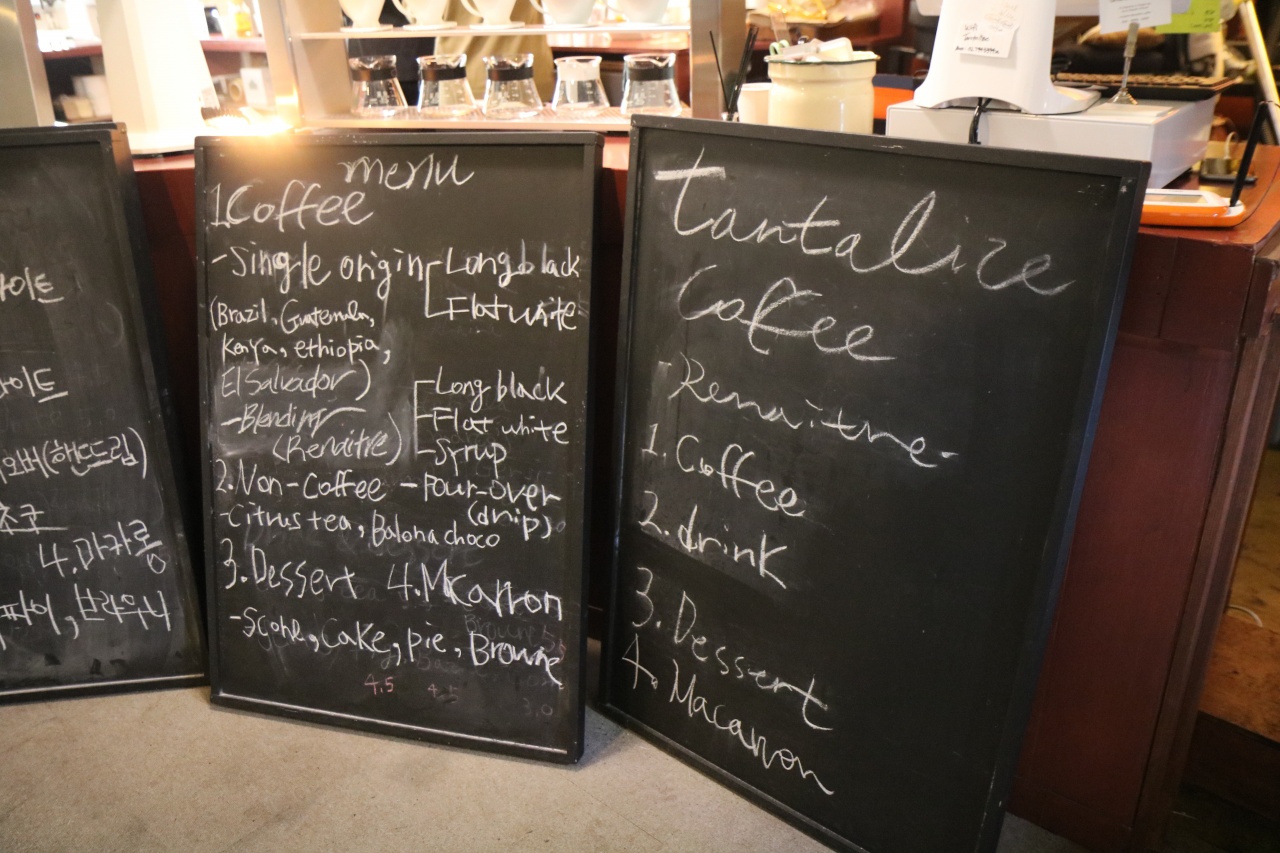 이트
이트
오버(한드립)
초코
4.마카롱
파이, 브라우니
menu
1.Coffee
-Single origin
Longblack
Flatwite
(Brazil, Guatemala,
Kenya, ethiopia,
El Salvador)
-Blending
(Renaitre)
Long black
Flat white
Syrup
2.Non-Coffee
-Pour-over
(drip)
-Citrus tea, Balona choco
3.Dessert 4.Mcarron
-Scone, Cake, pie, Browne
4.5
3.0
tantalize
Coffee
-Renaitre-
1.Coffee
2.drink
3.Dessert
4.Macarron